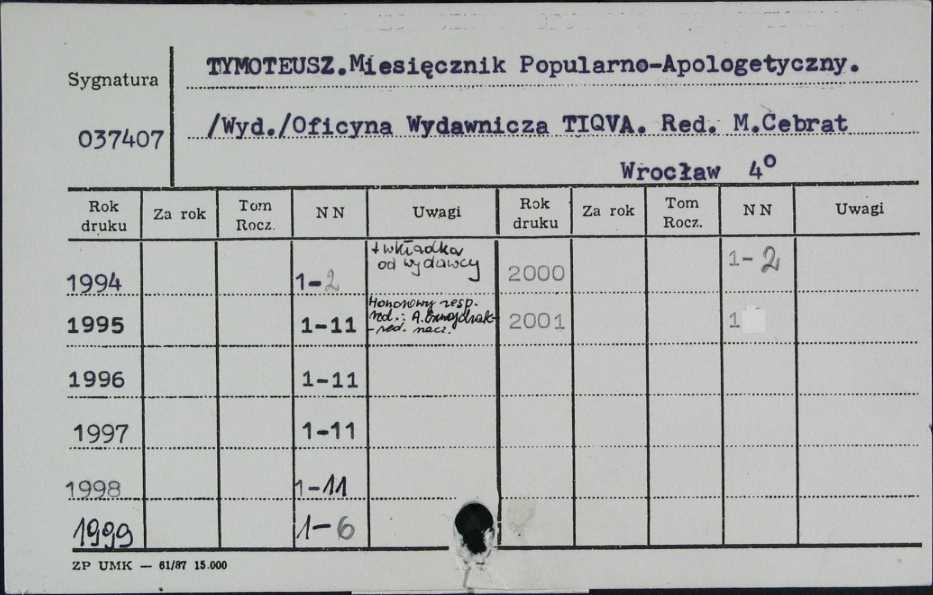 TYMOTEUSZ.Miesięcznik Popularno-Apologetyczny.
Sygnatura
037407
/Wyd./Oficyna Wydawnicza TIQVA. Red. M.Cebrat
Wrocław 4°
Rok druku Za rok Tom Rocz. NN Uwagi Rok druku Za rok Tom Rocz. NN Uwagi
1994 1-2 + wkładka od wydawcy 2000 1-2
1995 1-11 Honorowy resp. red.: A. - red. nacz. 2001 1
1996 1-11
1997 1-11
1998 1-11
1999 1-6
ZP UMK — 61/87 15.000